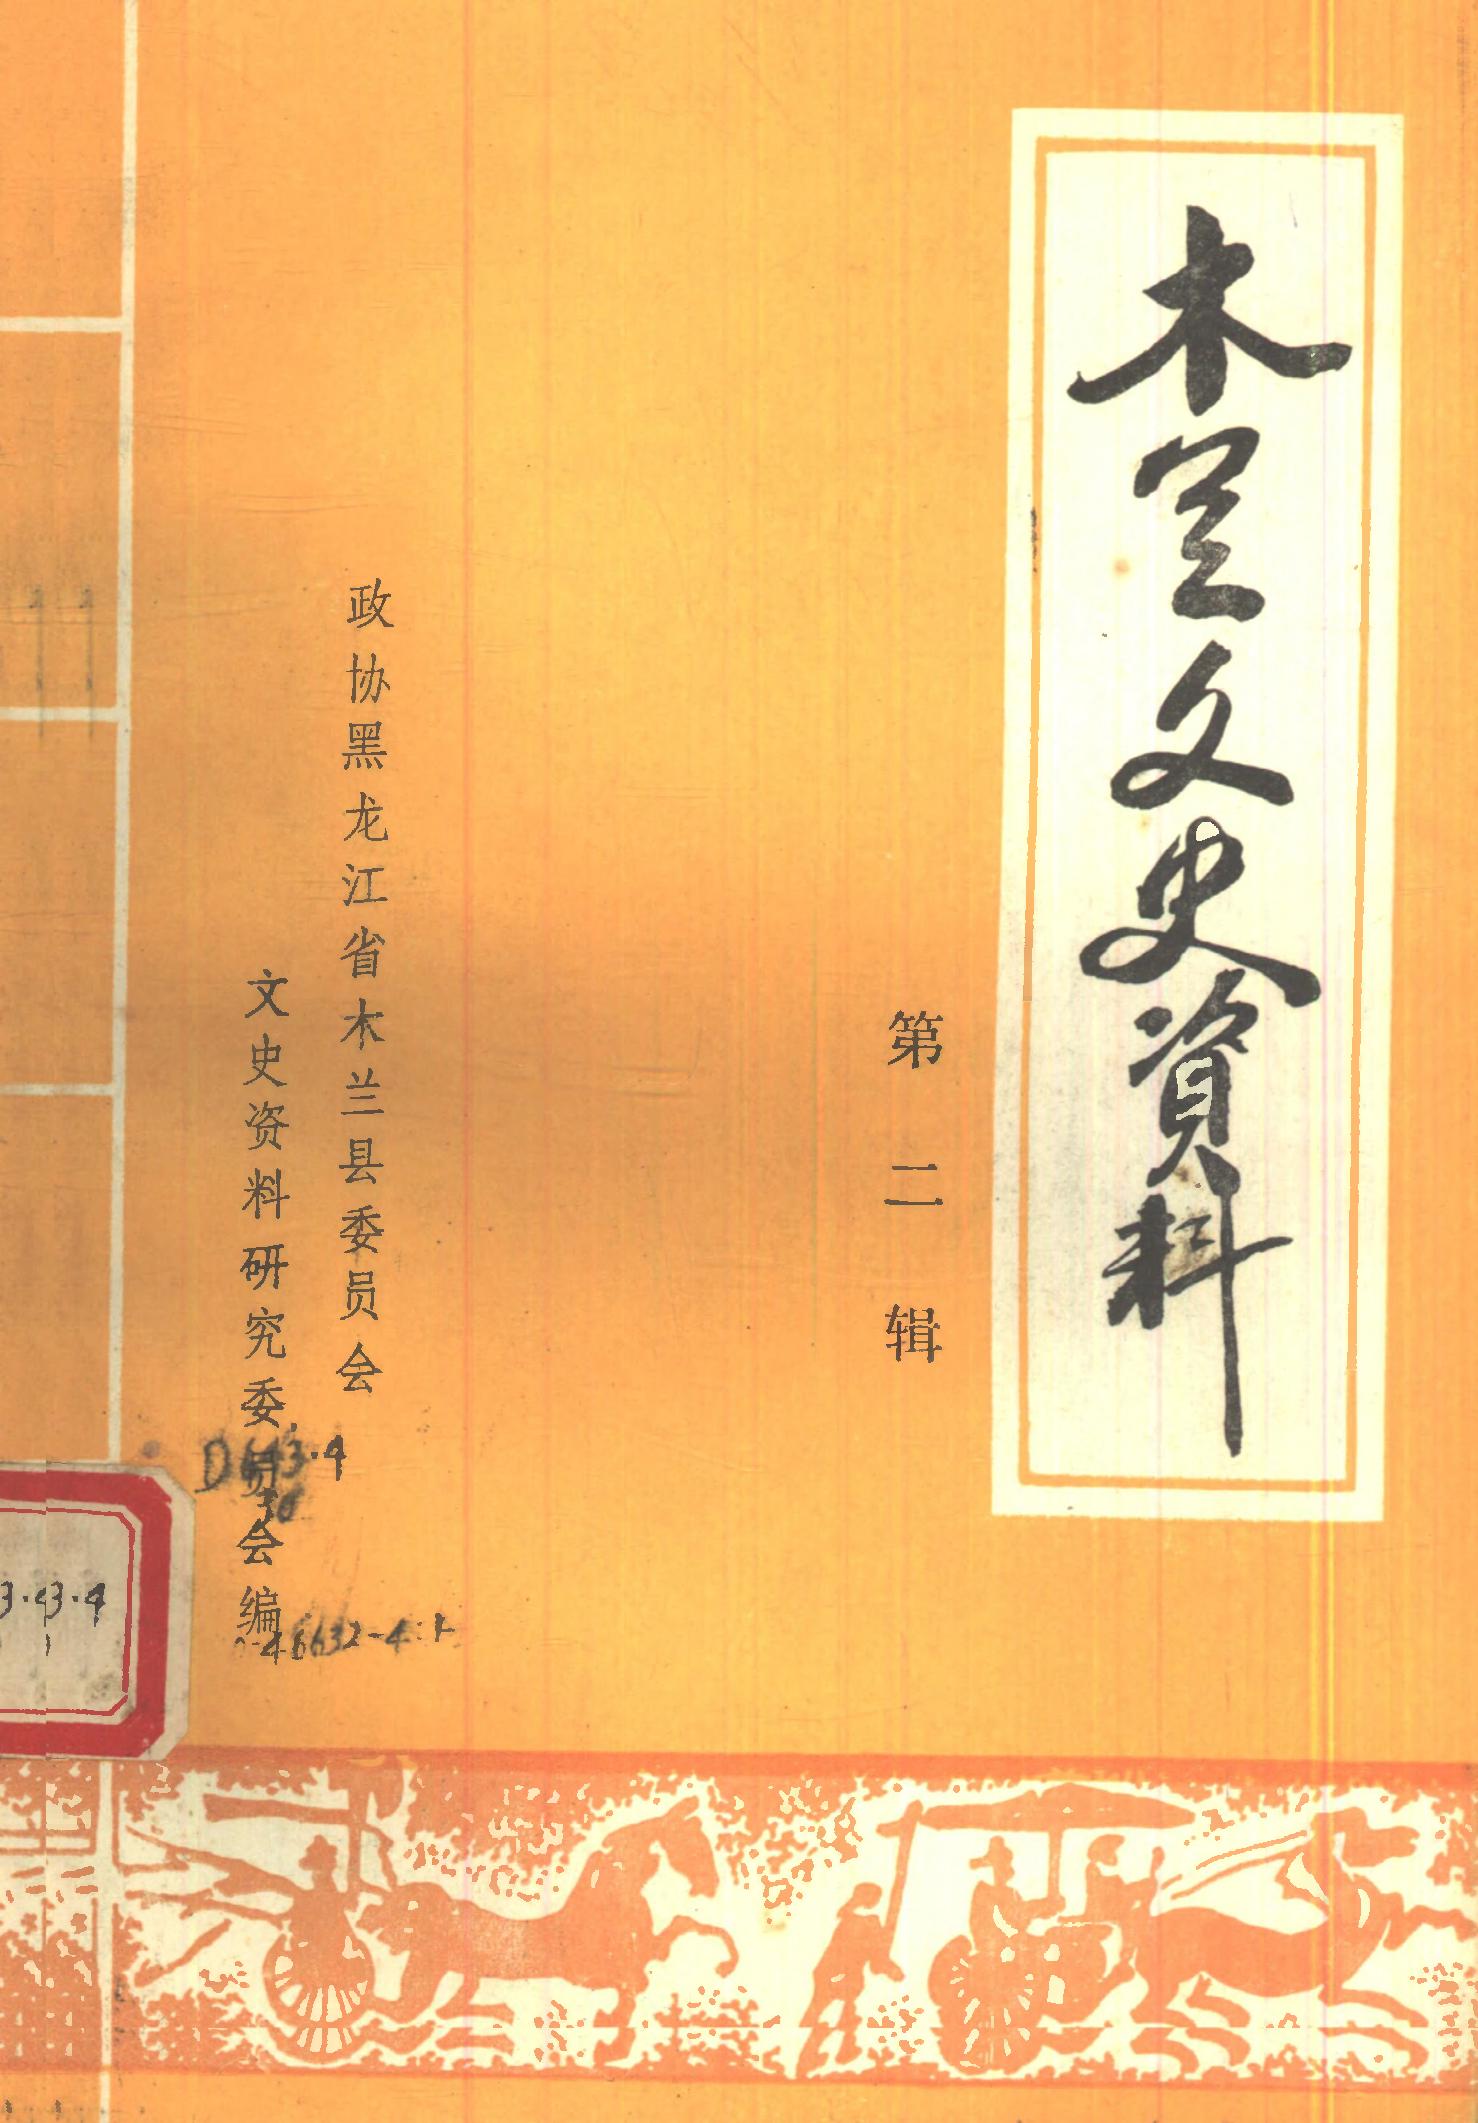 木兰文史資料
第二辑
政协黑龙江省木兰县委员会
文史资料研究委员会编
D643·4